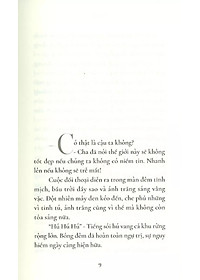 – Có thật là cậu ta không?
– Cha đã nói thế giới này sẽ không
tốt đẹp nếu chúng ta không có niềm tin. Nhanh
lên nếu không sẽ trễ mất!
Cuộc đối thoại diễn ra trong màn đêm tĩnh
mịch, bầu trời đầy sao và ánh trăng sáng vằng
vặc. Đột nhiên mây đen kéo đến, che phủ những
vì tinh tú, ánh trăng cũng vì thế mà không còn
tỏa sáng nữa.
“Hú Hú Hú” - Tiếng sói hú vang cả khu rừng
rộng lớn. Bóng đêm đã hoàn toàn ngự trị, sự nguy
hiểm ngày càng hiện hữu.
9